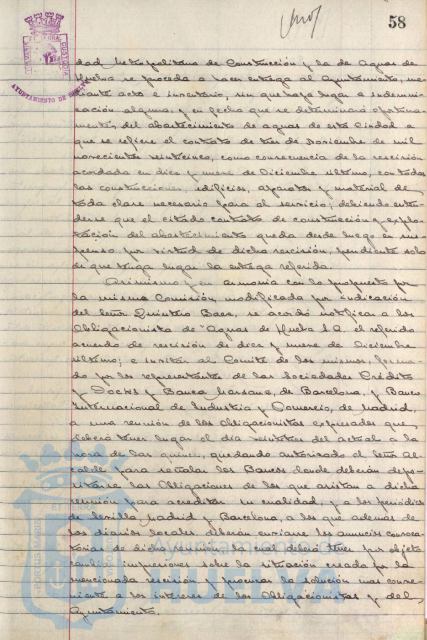 58
dad Metropolitana de Construcción y la de Aguas de
Huelva se proceda a hacer entrega al Ayuntamiento, me-
diante acta e inventario, sin que haya lugar a indemni-
zación alguna y en fecha que se determinará oportuna-
mente, del abastecimiento de aguas de esta Ciudad a
que se refiere el contrato de tres de Noviembre de mil
novecientos veinticinco, como consecuencia de la rescisión
acordada en diez y nueve de Diciembre último, con todas
las construcciones, edificios, aparatos y material de
toda clase necesario para el servicio; debiendo enten-
derse que el citado contrato de construcción y explo-
tación del abastecimiento queda desde luego en sus-
penso por virtud de dicha rescisión, pendiente solo
de que tenga lugar la entrega referida.
Asimismo y en armonía con lo propuesto por
la misma Comisión modificada por indicación
del Señor Quintero Baez, se acordó notificar a los
Obligacionistas de "Aguas de Huelva S.A. el referido
acuerdo de rescisión de diez y nueve de Diciembre
último; e invitar al Comité de los mismos, forma-
do por los representantes de las Sociedades Crédito
y Docks y Banca Marsans, de Barcelona, y Banco
Internacional de Industria y Comercio, de Madrid,
a una reunión de los Obligacionistas expresados que
deberá tener lugar el día veintitres del actual a la
hora de las quince, quedando autorizado el Señor Al-
calde para señalar los Bancos donde deberán depo-
sitarse las Obligaciones de los que asistan a dicha
reunión para acreditar su cualidad, y a los periódicos
de Sevilla, Madrid y Barcelona, a los que además de
los diarios locales, deberán enviarse los anuncios convoca-
torias de dicha reunión, la cual deberá tener por objeto
cambiar impresiones sobre la situación creada por la
mencionada rescisión y procurar la solución mas conve-
niente a los intereses de los Obligacionistas y del
Ayuntamiento.
AYUNTAMIENTO DE HUELVA
HUELVA